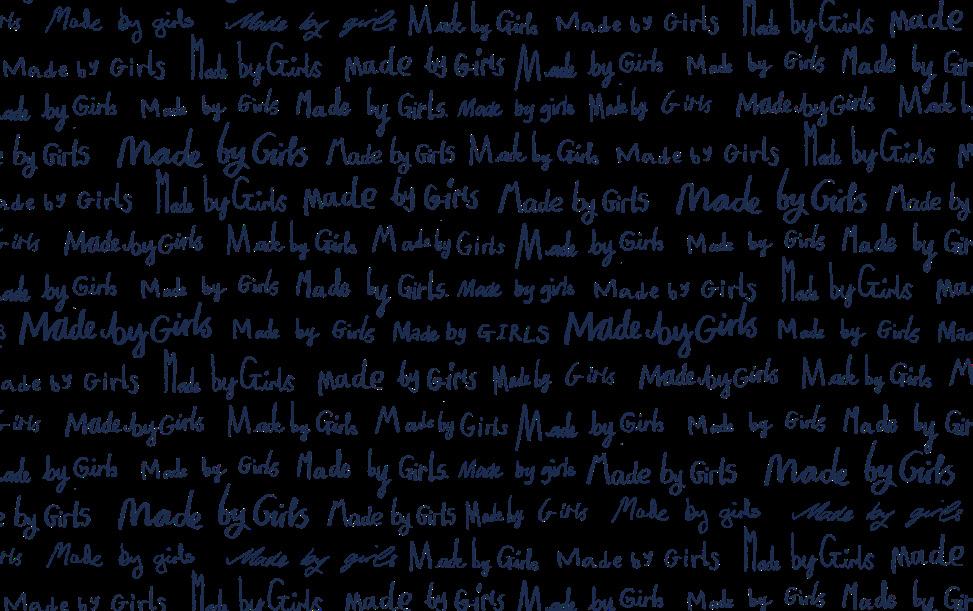 Made by girls Made by girls Made by Girls Made by Girls Made by Girls Made
Made by Girls Made by Girls Made by Girls Made by Girls Made by Girls Made by
by Girls Made by Girls Made by Girls. Made by girls Made by Girls Made by Girls Made
by Girls Made by Girls Made by Girls Made by Girls Made by Girls Made by Girls
by Girls Made by Girls Made by Girls Made by Girls Made by Girls Made by
Girls Made by Girls Made by Girls Made by Girls Made by Girls Made by Girls Made by
by Girls Made by Girls Made by Girls. Made by girls Made by Girls Made by Girls
Made by Girls Made by Girls Made by GIRLS Made by Girls Made by Girls Made
by Girls Made by Girls Made by Girls Made by Girls Made by Girls Made by Girls
Girls Made by Girls Made by Girls Made by Girls Made by Girls Made by Girls Made by
by Girls Made by Girls Made by Girls. Made by girls Made by Girls Made by Girls
by Girls Made by Girls Made by Girls Made by Girls Made by girls Made by girls
Made by girls Made by girls Made by Girls Made by Girls Made by Girls Made
Made by Girls Made by Girls Made by Girls Made by Girls Made by Girls Made by